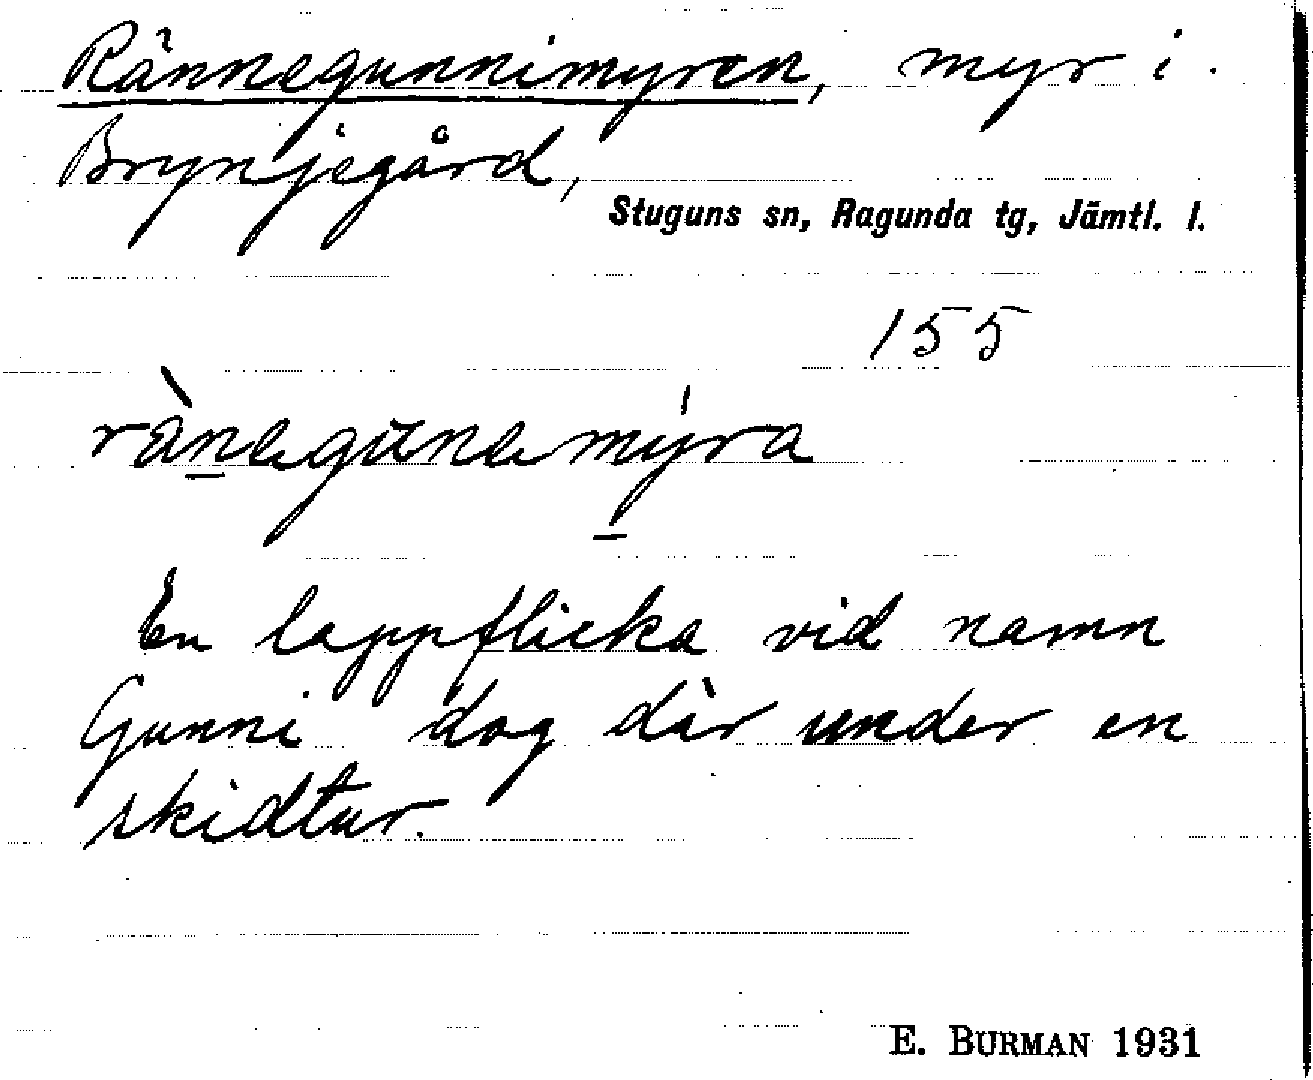 Rännegunnimyren, myr i
Brynjegård,
Stuguns sn, Ragunda tg, Jämtl. l.
155
rànegunemýra
En lappflicka vid namn
Gunni dog där under en
skidtur.
E. BURMAN 1931